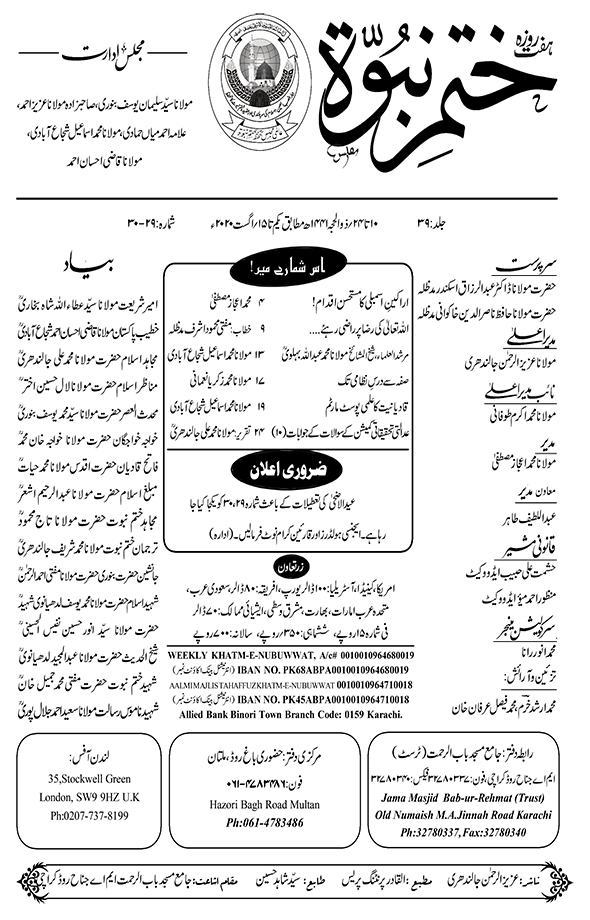 ہفت روزہ
ختم نبوۃ
مجلس ادارت
مولانا سید سلیمان یوسف بنوری، صاحبزادہ مولانا عزیز احمد،
علامہ احمد میاں حمادی، مولانا محمد اسماعیل شجاع آبادی،
مولانا قاضی احسان احمد
جلد: ۳۹
۱۰ تا ۲۴/ ذوالحجہ ۱۴۴۱ھ مطابق یکم تا ۱۵/ اگست ۲۰۲۰ء
شمارہ: ۲۹-۳۰
سرپرست
حضرت مولانا ڈاکٹر عبدالرزاق اسکندر مدظلہ
حضرت مولانا حافظ ناصر الدین خاکوانی مدظلہ
مدیر اعلیٰ
مولانا عزیز الرحمٰن جالندھری
نائب مدیر اعلیٰ
مولانا محمد اکرم طوفانی
مدیر
مولانا محمد اعجاز مصطفیٰ
معاون مدیر
عبداللطیف طاہر
قانونی مشیر
حشمت علی حبیب ایڈووکیٹ
منظور احمد میؤ ایڈووکیٹ
سرکولیشن منیجر
محمد انور رانا
تزئین و آرائش:
محمد ارشد خرم، محمد فیصل عرفان خان
اس شمارے میں!
اراکین اسمبلی کا مستحسن اقدام! ۴ محمد اعجاز مصطفیٰ
اللہ تعالیٰ کی رضا پر راضی رہئے.... ۹ خطاب: مفتی محمود اشرف مدظلہ
مرشد العلماء، شیخ المشائخ مولانا محمد عبداللہ بہلویؒ ۱۳ مولانا محمد اسماعیل شجاع آبادی
صفہ سے درسِ نظامی تک ۱۷ مولانا محمد زکریا نعمانی
قادیانیت کا علمی پوسٹ مارٹم ۱۹ مولانا محمد اسماعیل شجاع آبادی
عدالتی تحقیقاتی کمیشن کے سوالات کے جوابات (۱۰) ۲۴ تقریر: مولانا محمد علی جالندھریؒ
ضروری اعلان
عید الاضحیٰ کی تعطیلات کے باعث شمارہ ۲۹، ۳۰ کو یکجا کیا جا
رہا ہے۔ ایجنسی ہولڈرز اور قارئین کرام نوٹ فرمالیں۔ (ادارہ)
زر تعاون
امریکا، کینیڈا، آسٹریلیا: ۱۰۰ ڈالر یورپ، افریقہ: ۸۰ ڈالر، سعودی عرب،
متحدہ عرب امارات، بھارت، مشرق وسطیٰ، ایشیائی ممالک: ۷۰ ڈالر
فی شمارہ ۱۵ روپے، ششماہی: ۳۵۰ روپے، سالانہ: ۷۰۰ روپے
WEEKLY KHATM-E-NUBUWWAT, A/c# 0010010964680019
(انٹرنیشنل بینک اکاؤنٹ نمبر) IBAN NO. PK68ABPA0010010964680019
AALMIMAJLISTAHAFFUZKHATM-E-NUBUWWAT 0010010964710018
(انٹرنیشنل بینک اکاؤنٹ نمبر) IBAN NO. PK45ABPA0010010964710018
Allied Bank Binori Town Branch Code: 0159 Karachi.
بیاد
امیر شریعت مولانا سید عطاء اللہ شاہ بخاریؒ
خطیب پاکستان مولانا قاضی احسان احمد شجاع آبادیؒ
مجاہد اسلام حضرت مولانا محمد علی جالندھریؒ
مناظر اسلام حضرت مولانا لال حسین اخترؒ
محدث العصر حضرت مولانا سید محمد یوسف بنوریؒ
خواجہ خواجگان حضرت مولانا خواجہ خان محمدؒ
فاتح قادیان حضرت اقدس مولانا محمد حیاتؒ
مبلغ اسلام حضرت مولانا عبدالرحیم اشعرؒ
مجاہد ختم نبوت حضرت مولانا تاج محمودؒ
ترجمان ختم نبوت مولانا محمد شریف جالندھریؒ
جانشین حضرت بنوری حضرت مولانا مفتی احمد الرحمٰنؒ
شہید اسلام حضرت مولانا محمد یوسف لدھیانوی شہیدؒ
حضرت مولانا سید انور حسین نفیس الحسینیؒ
شیخ الحدیث حضرت مولانا عبدالمجید لدھیانویؒ
شہید ختم نبوت حضرت مفتی محمد جمیل خانؒ
شہید ناموس رسالت مولانا سعید احمد جلال پوریؒ
رابطہ دفتر: جامع مسجد باب الرحمت (ٹرسٹ)
ایم اے جناح روڈ کراچی، فون: ۳۲۷۸۰۳۳۷ فیکس: ۳۲۷۸۰۳۴۰
Jama Masjid Bab-ur-Rehmat (Trust)
Old Numaish M.A.Jinnah Road Karachi
Ph:32780337,Fax:32780340
مرکزی دفتر: حضوری باغ روڈ، ملتان
فون: ۰۶۱-۴۷۸۳۴۸۶
Hazori Bagh Road Multan
Ph:061-4783486
لندن آفس:
35,Stockwell Green
London, SW9 9HZ U.K
Ph:0207-737-8199
ناشر: عزیز الرحمٰن جالندھری مطبع: القادر پرنٹنگ پریس طابع: سید شاہد حسین مقام اشاعت: جامع مسجد باب الرحمت ایم اے جناح روڈ کراچی